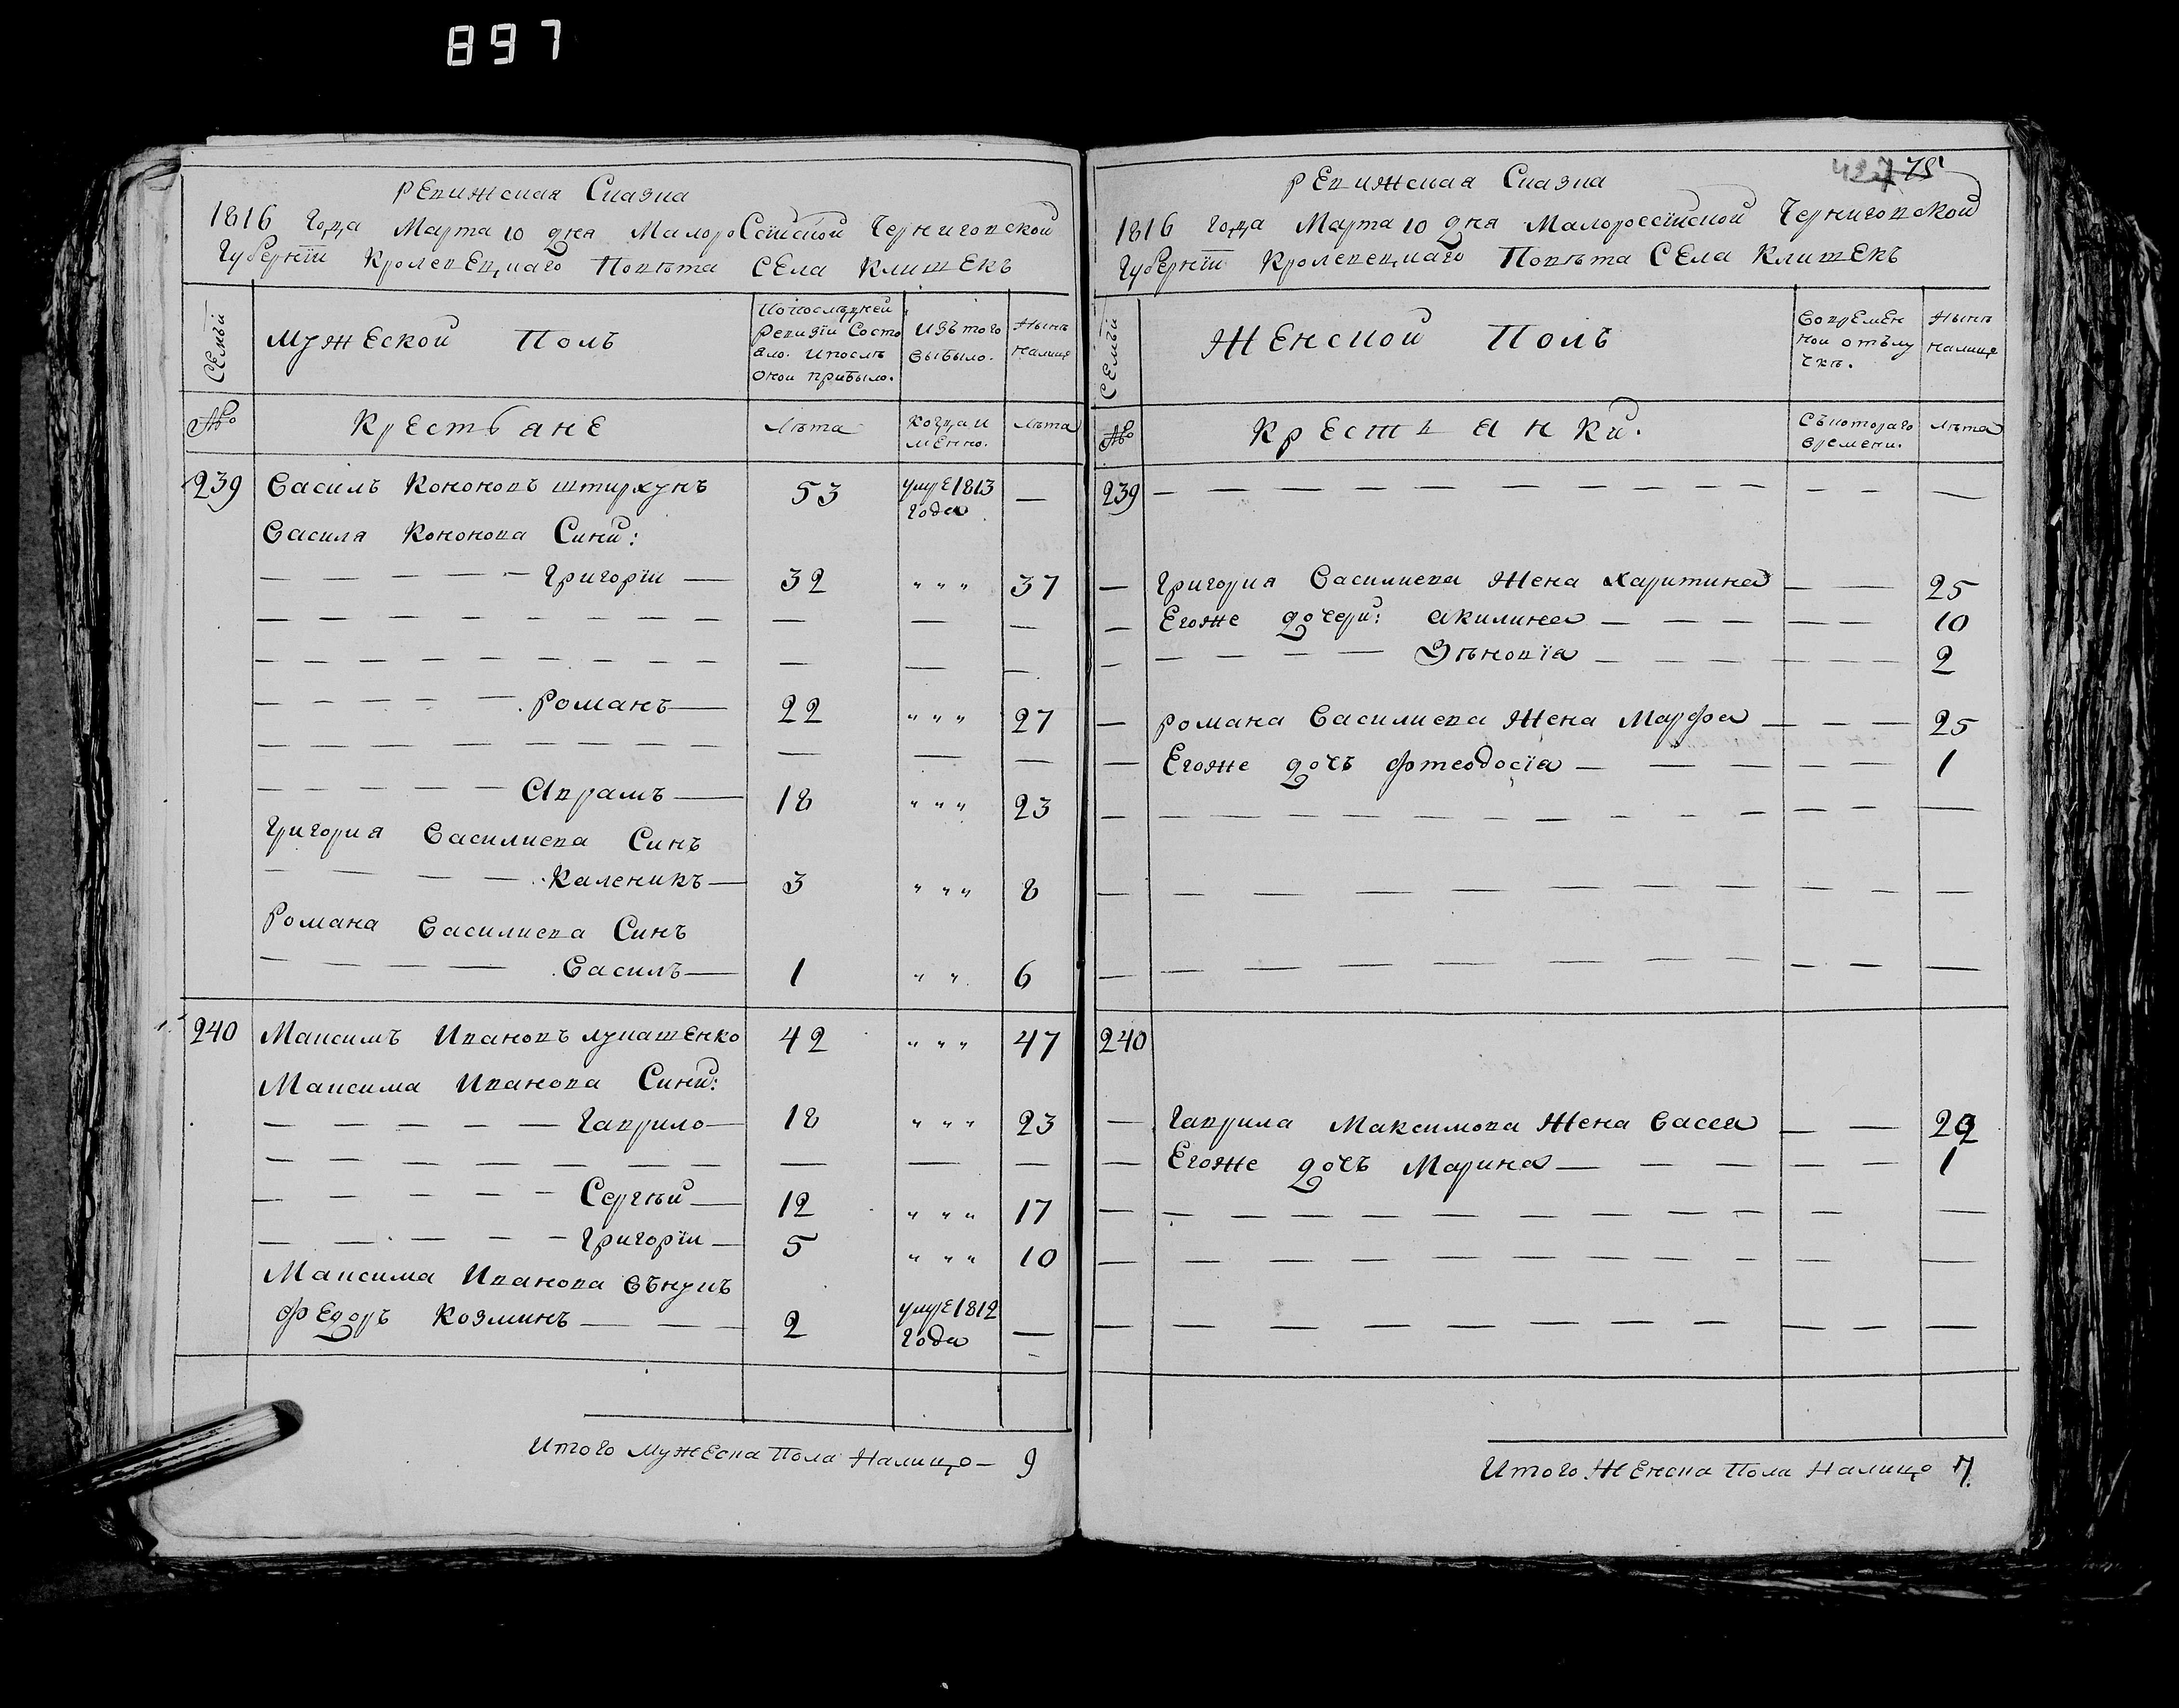 897
Ревижская Сказка
1816 Года Марта 10 дня МалороСсійской Черниговской
Губерніи Кролевецкаго Повѣта Села Клишекъ
Семьи
Мужеской Полъ
Попослѣдней
Ревизіи Состо
яло. Ипослѣ
Оной прибыло.
Изътого
выбыло.
Нынѣ
Налице
№
Крестьане
Лѣта
Когдаи
мЕнно.
Лѣта
239 Василъ Кононовъ штиркунъ 53 умре1813 —
Года
Василя Кононова Сини:
Григоріи 32 " " " 37
Романъ 22 " " " 27
Аврамъ 18 " " " 23
Григория Василиева Синъ
Каленикъ 3 " " " 8
Романа Василиева Синъ
Василъ 1 " " 6
240 Максимъ Ивановъ лукашЕнко 42 " " " 47
Максима Иванова Сини:
Гаврило 18 " " " 23
Сергѣй 12 " " " 17
Григоріи 5 " " " 10
Максима Иванова вънукъ
Федоръ Козминъ 2 умре1812 —
Года
Итого мужеска Пола Налицо 9
427 75
Ревижская Сказка
1816 Года Марта 10 дня Малороссійской Черниговской
Губерніи Кролевецкаго Повѣта Села Клишекъ
Семьи
Женской Полъ
Вовремен
ной отълу
чкѣ.
Нынѣ
Налице
№
Крестьвнки.
Съкотораго
времени.
Лѣта
239
Григория Василиева Жена Харитина 25
Егоже дочери: акилина 10
Зѣновіа 2
Романа Василиева Жена Марфа 25
Егоже дочъ Фтеодосіа 1
240
Гаврила Максимова Жена Васса 22
Егоже дочъ Марина 1
Итого Женска Пола Налицо 7.